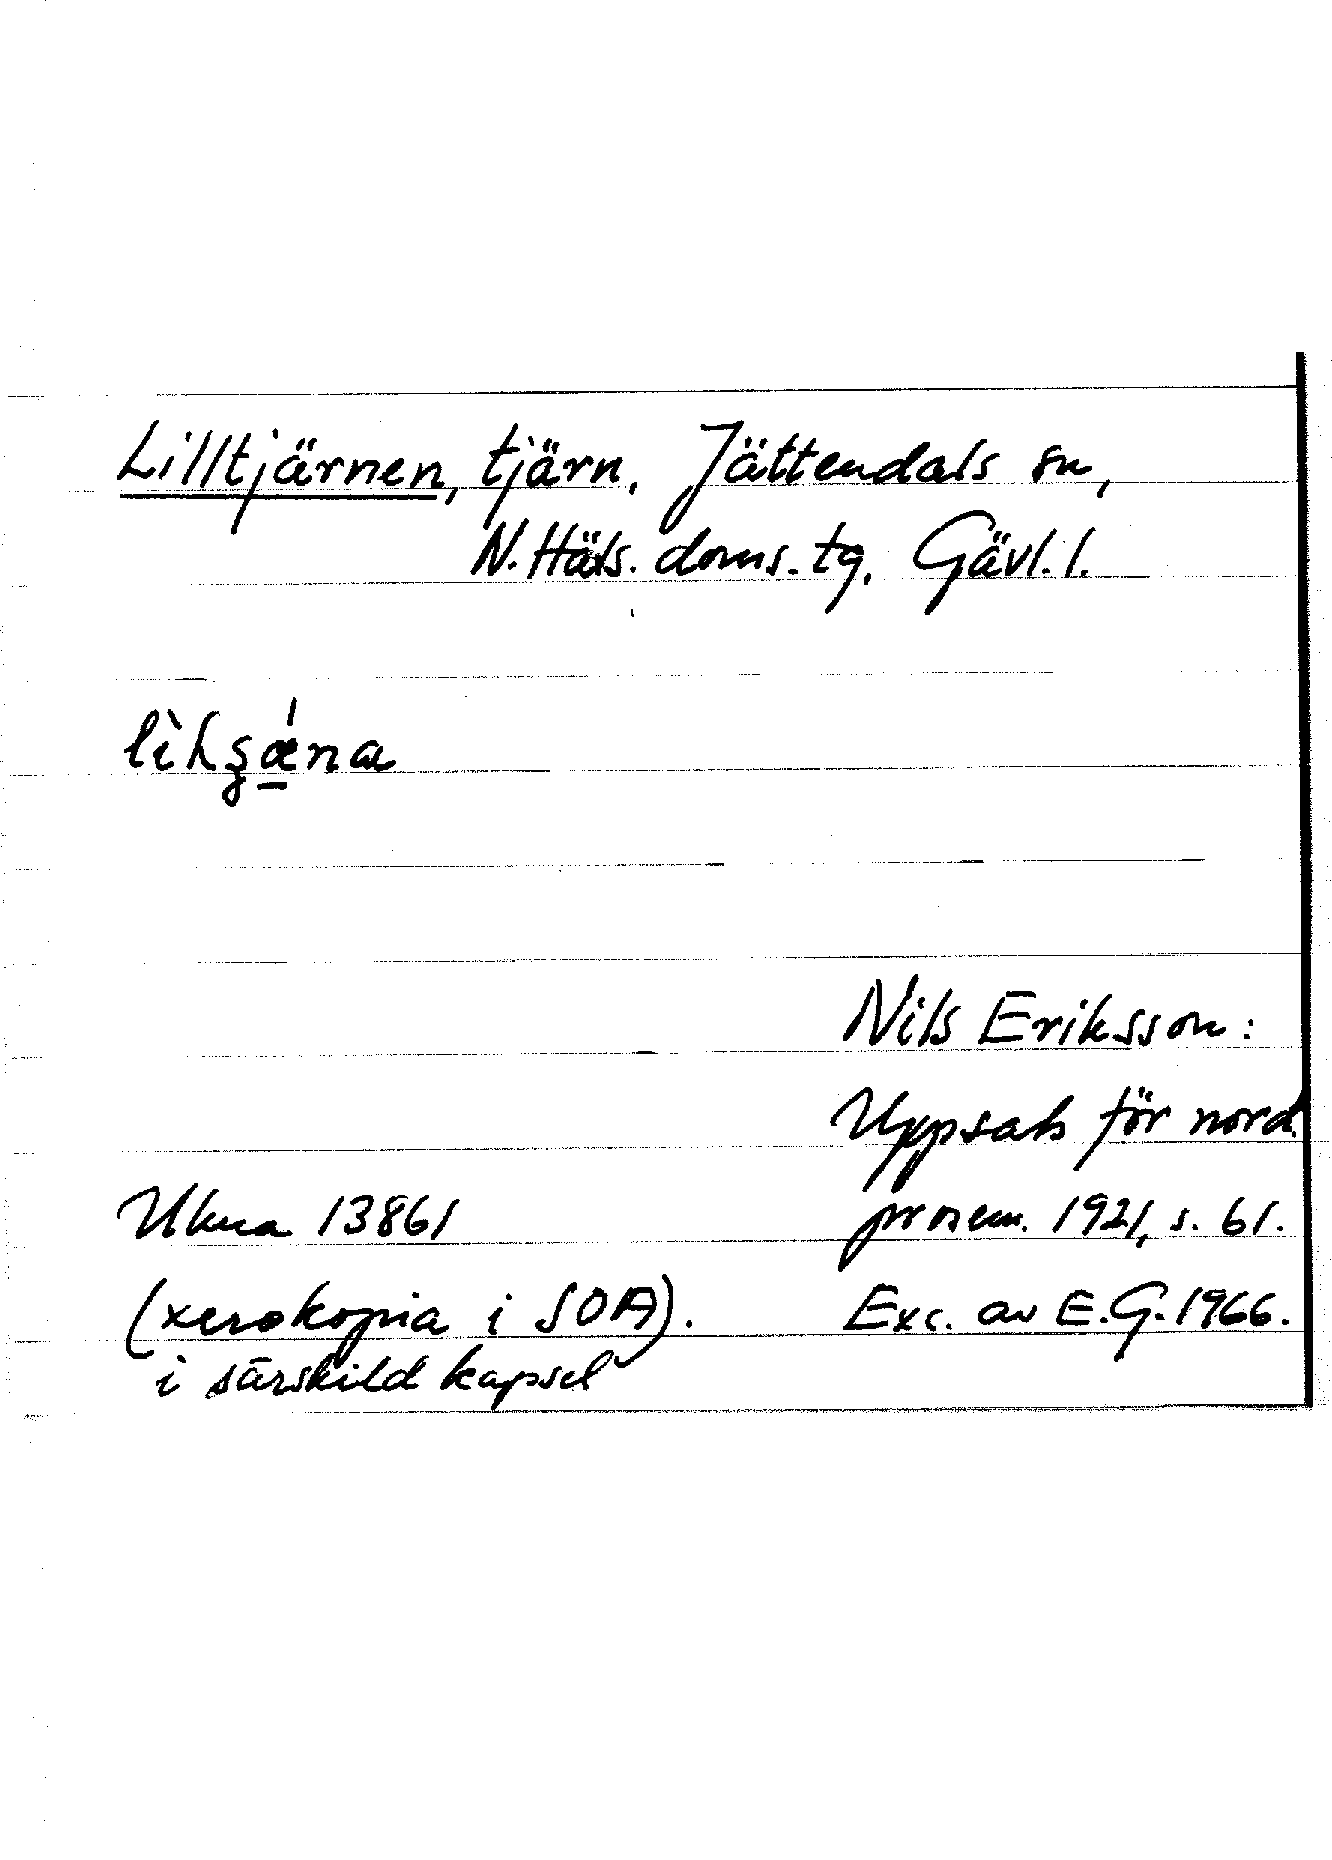 Lilltjärnen, tjärn, Jättendals sn,
N. Häls. doms. tg. Gävl. l.
Nils Eriksson:
Uppsats för nord.
prosem. 1921, s. 61.
13861
(xerokopia i SOA).
Exc. av E.G. 1966.
i särskild kapsel